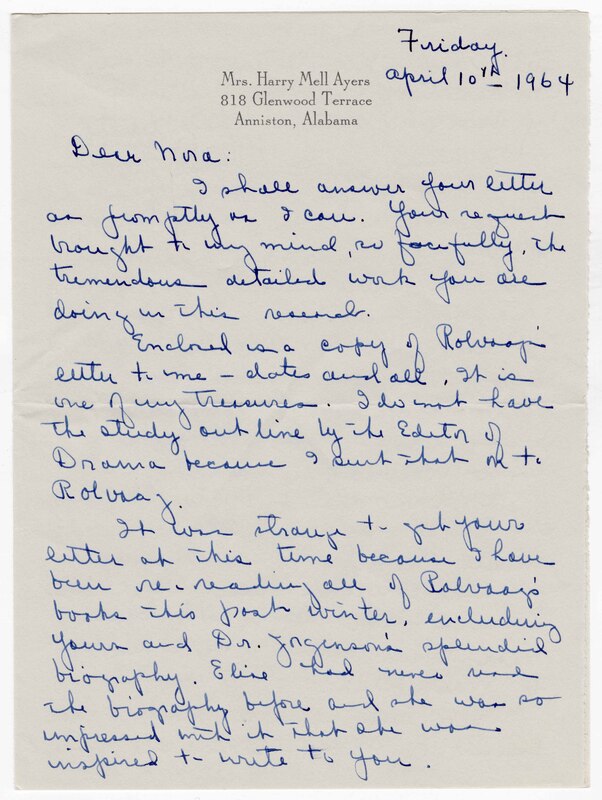 Friday.
April 10th 1964
Mrs. Harry Mell Ayers
818 Glenwood Terrace
Anniston, Alabama
Dear Nora:
I shall answer your letter
as promptly as I can. Your request
brought to my mind, so forcefully, the
tremendous detailed work you are
doing in this research.
Enclosed is a copy of Rolvaag's
letter to me – dates and all. It is
one of my treasures. I do not have
the study outline by the Editor of
Drama because I sent that on to
Rolvaag.
It was strange to get your
letter at this time because I have
been re-reading all of Rolvaag's
books this past winter, including
yours and Dr. Jorgenson's splendid
biography. Elise had never read
the biography before and she was so
impressed with it that she was
inspired to write to you.